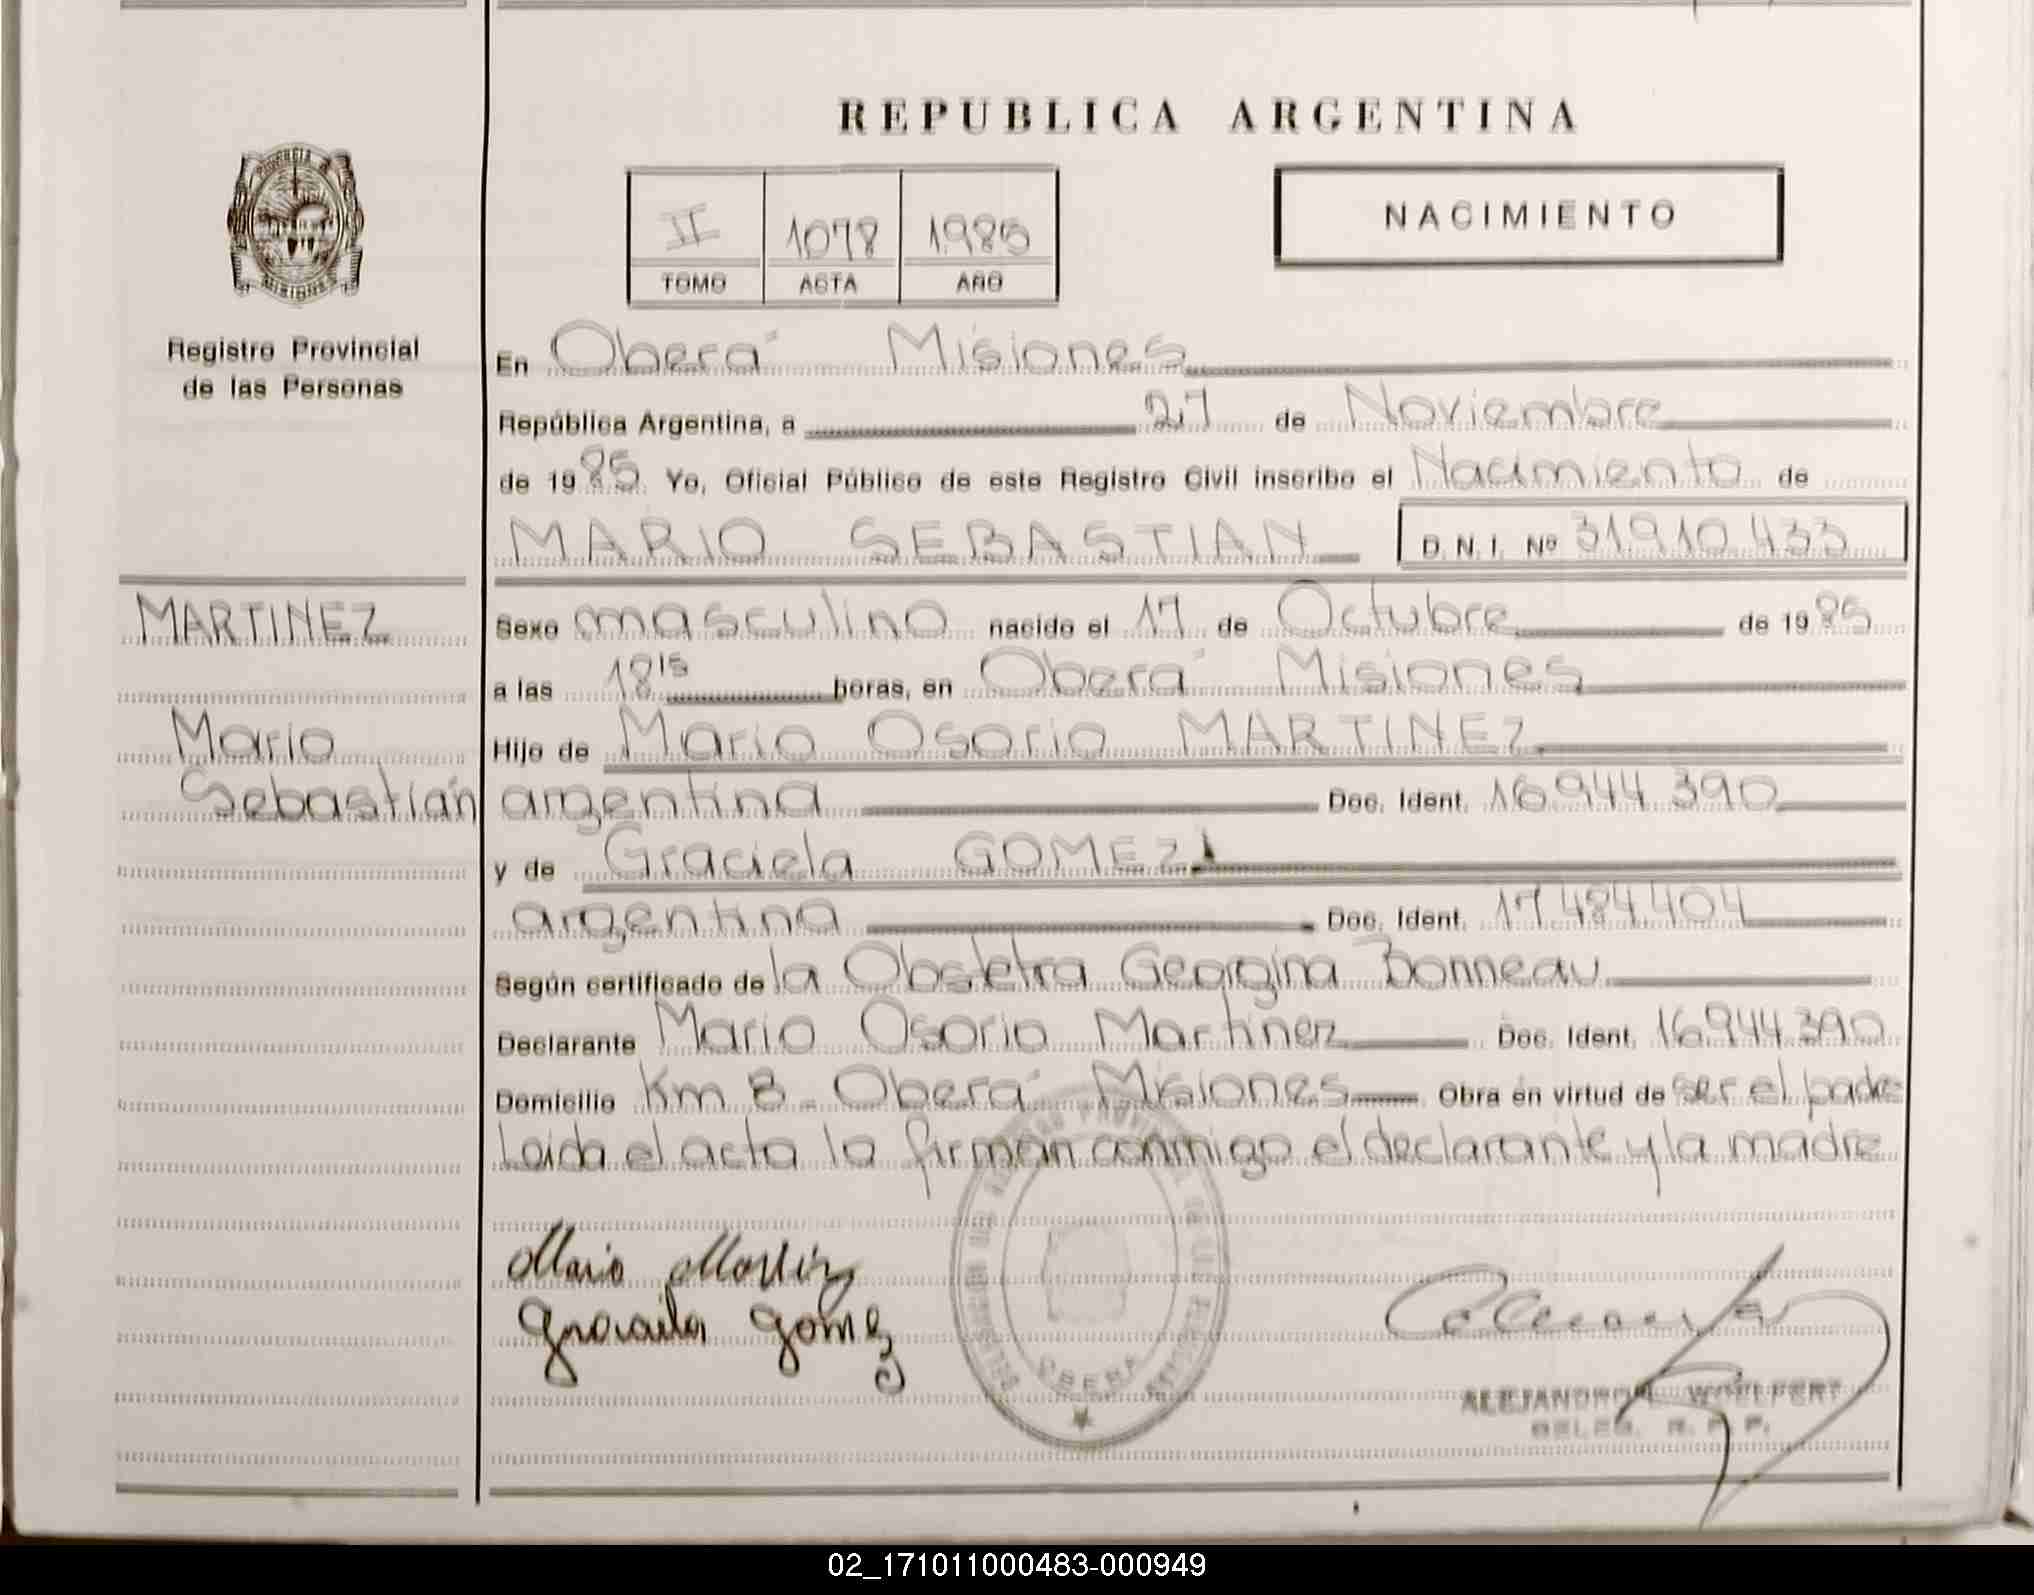 REPUBLICA ARGENTINA
PROVINCIA DE MISIONES
Registro Provincial
de las Personas
II 1078 1985
TOMO ACTA AÑO
NACIMIENTO
En Oberá Misiones
República Argentina, a 27 de Noviembre
de 1985 Yo, Oficial Público de este Registro Civil inscribo el Nacimiento de
MARIO SEBASTIAN D.N.I. Nº 31.910.433
MARTINEZ
Mario
Sebastián
Sexo masculino nacido el 17 de Octubre de 1985
a las 18¹⁵ horas, en Oberá Misiones
Hijo de Mario Osorio MARTINEZ
argentina Doc. Ident. 16.944.390
y de Graciela GOMEZ
argentina Doc. Ident. 17.484.404
Según certificado de la Obstetra Georgina Bonneau
Declarante Mario Osorio Martinez Doc. Ident. 16.944.390
Domicilio Km 8 Oberá Misiones Obra en virtud de ser el padre
Leida el acta la firman conmigo el declarante y la madre
Mario Martinez
Graciela Gomez
OBERA
ALEJANDRO WOELFERT
DELEG. R. P. P.
02_171011000483-000949